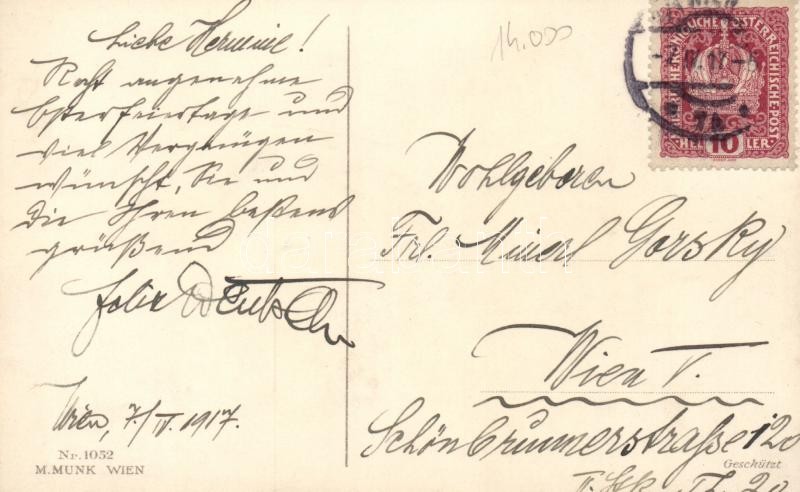 Liebe Hermine!
Recht angenehme
Osterfeiertage und
viel Vergnügen
wünscht, Sie und
die Ihren bestens
grüßend
Felix Deutsch
Wien, 7/IV. 1917.
Nr. 1052
M. MUNK WIEN
14.000
KAISERLICHE KÖNIGLICHE ÖSTERREICHISCHE POST
HELLER
10
Wohlgeboren
Frl. Gorsky
Wien V.
Schönbrunnerstraße 120
Geschützt